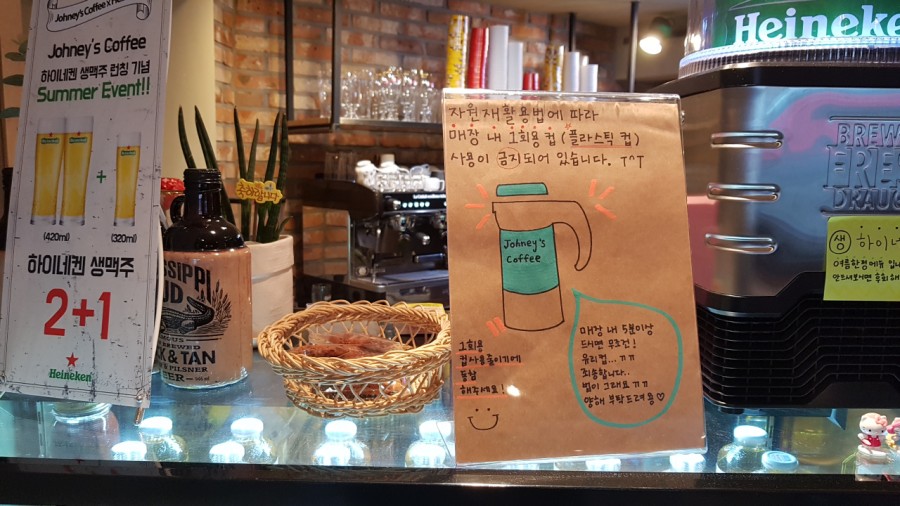 Johney's Coffee x
Johney's Coffee
하이네켄 생맥주 런칭 기념
Summer Event!!
+
(420ml)
(320ml)
하이네켄 생맥주
2+1
Heineken
축하합니다
SSIPPI
UD
BREWED
K & TAN
PILSNER
BEER
자원재활용법에 따라
매장 내 1회용컵(플라스틱 컵)
사용이 금지되어 있습니다. T^T
Johney's
Coffee
1회용
컵사용줄이기에
동참
해주세요!
매장 내 5분이상
드시면 무조건!
유리컵...ㄲㄲ
죄송합니다..
법이 그래요 ㄲㄲ
양해 부탁드려용♡
Heineken
BREW
DRAUG
생 하이네
여름한정메뉴 입니
안드셔보시면 후회